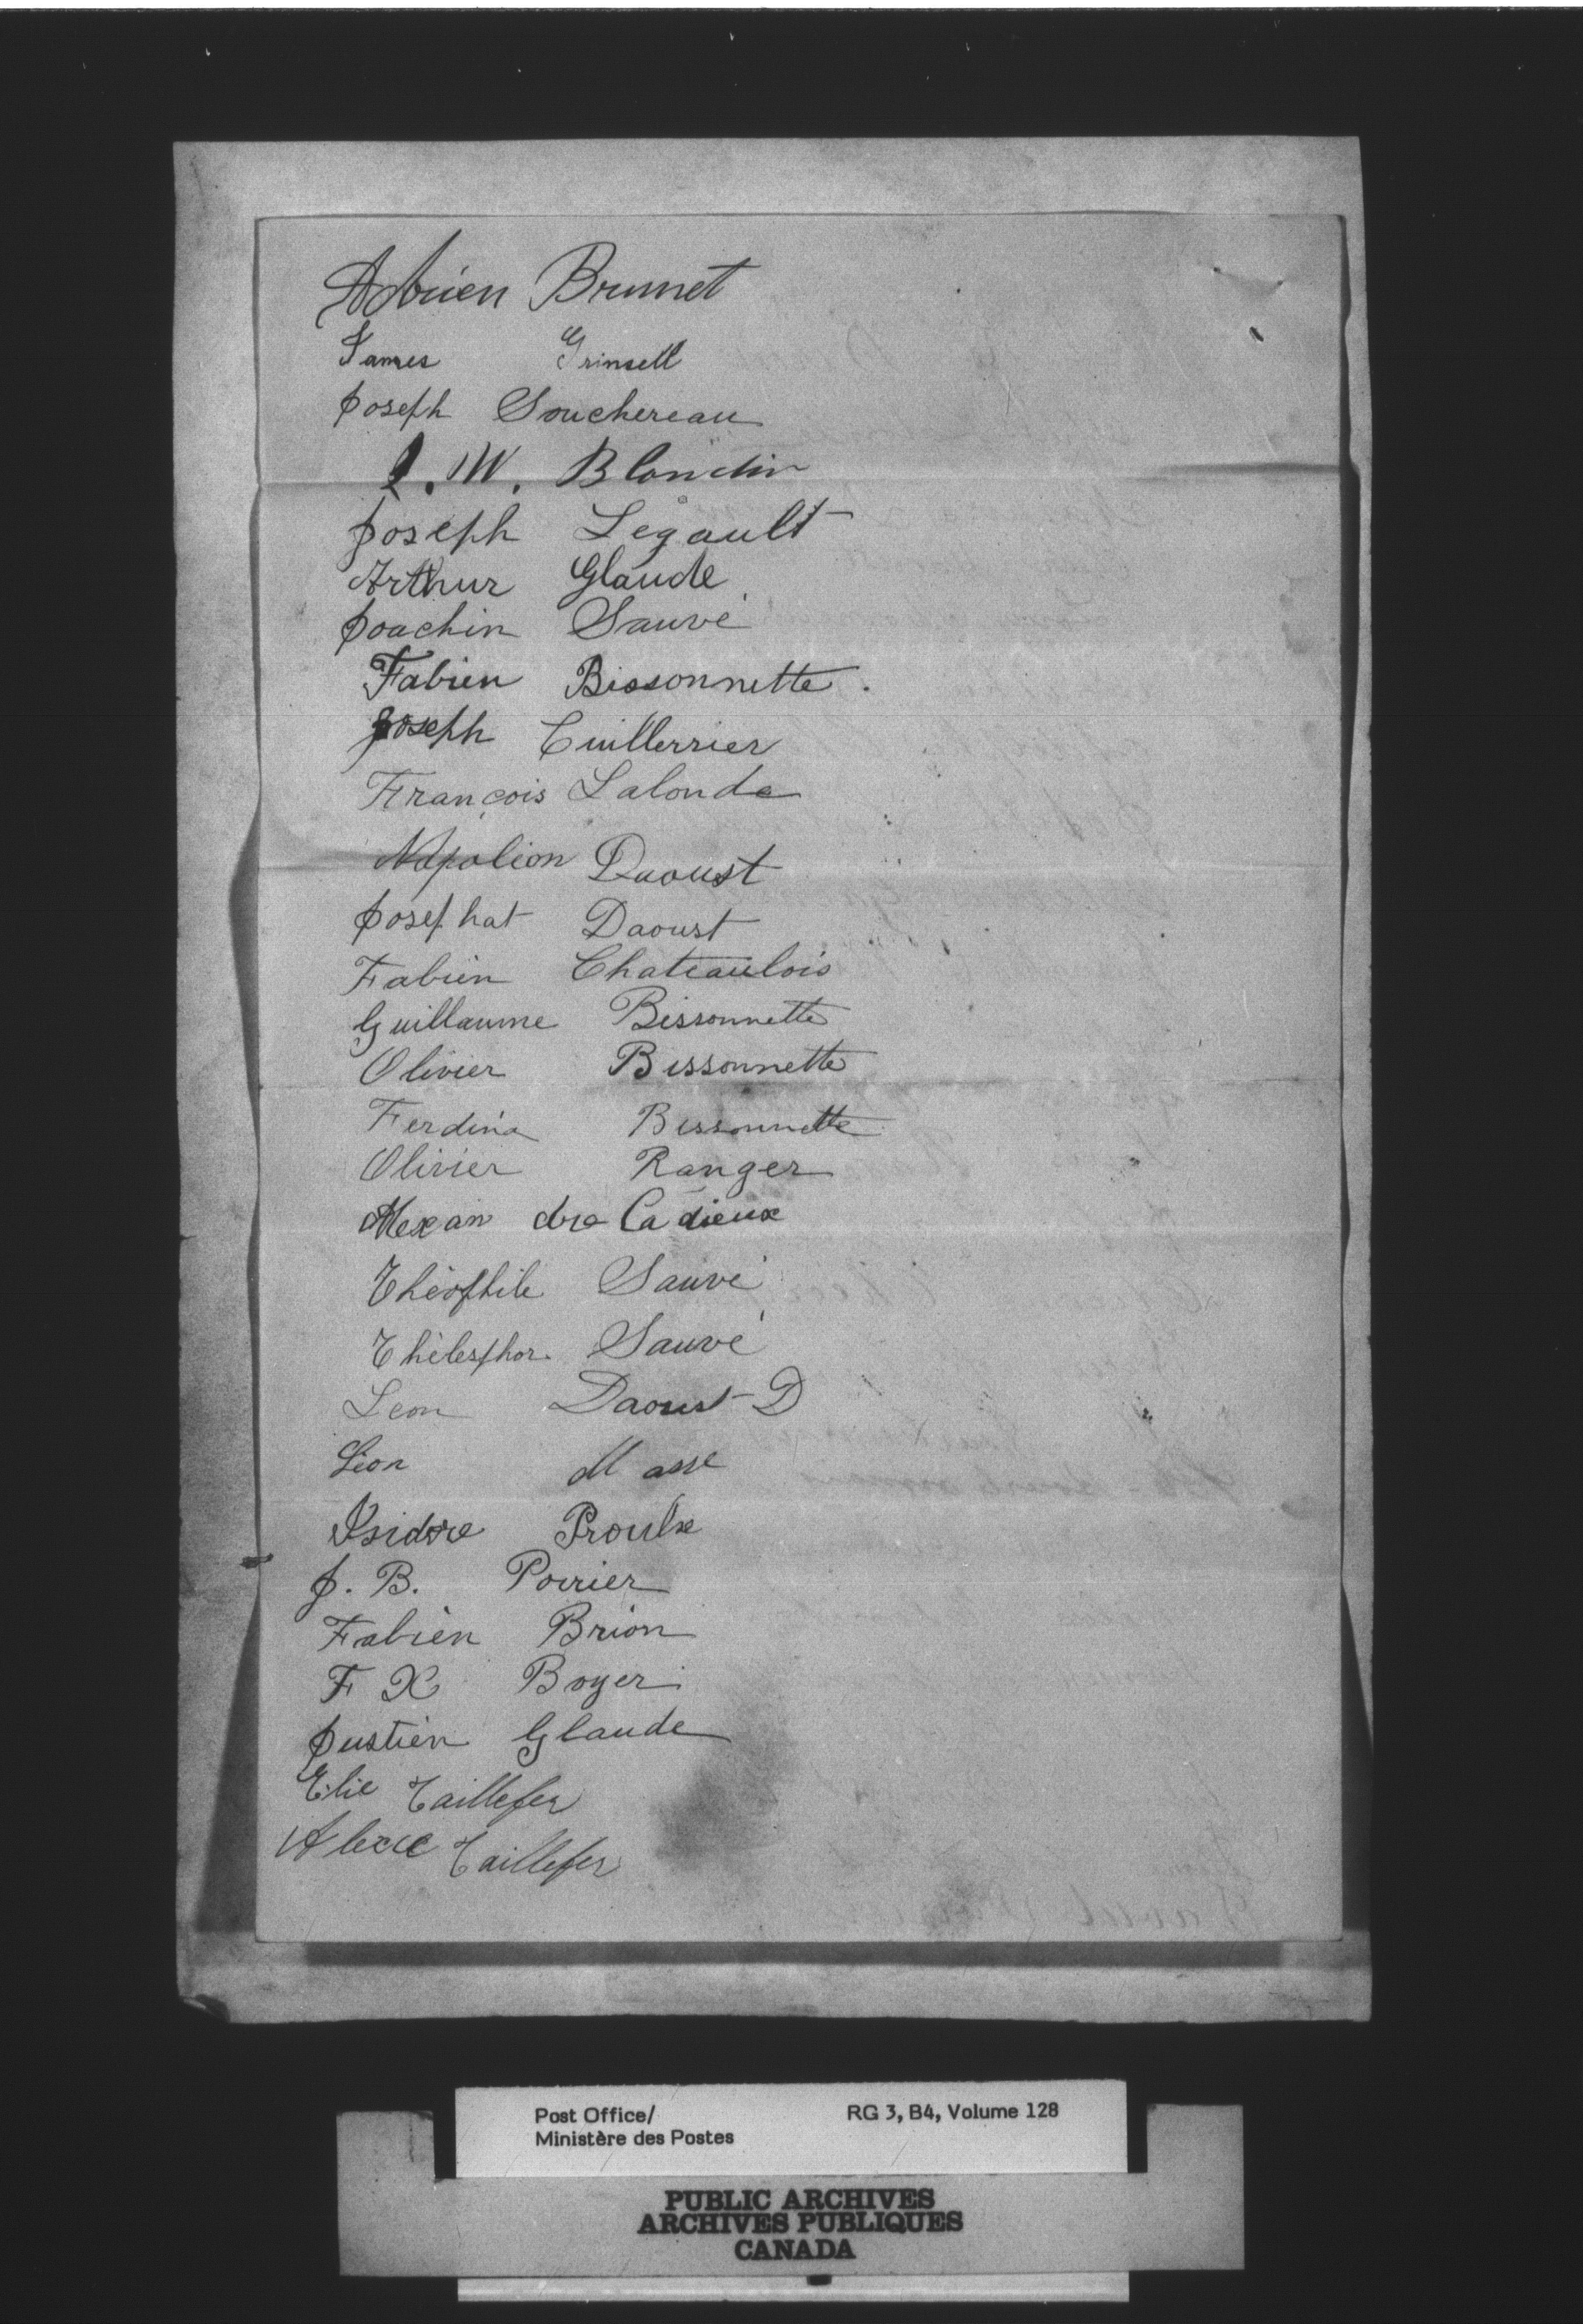 Adrien Brunet
James Grinsell
Joseph Souchereau
J. W. Blondin
Joseph Legault
Arthur Glaude
Joachin Sauvé
Fabien Bissonnette.
Joseph Cuillerrier
François Lalonde
Napoléon Daoust
Josephat Daoust
Fabien Chateaulois
Guillaume Bissonnette
Olivier Bissonnette
Ferdina Bissonnette
Olivier Ranger
Alexan dre Cadieux
Théophile Sauvé
Thélesphor Sauvé
Leon Daoust D
Léon Masse
Isidore Proulx
J. B. Poirier
Fabien Brion
F X Boyer
Justien Glaude
Elie Taillefer
Taillefer
Post Office/ RG 3, B4, Volume 128
Ministère des Postes
PUBLIC ARCHIVES
ARCHIVES PUBLIQUES
CANADA